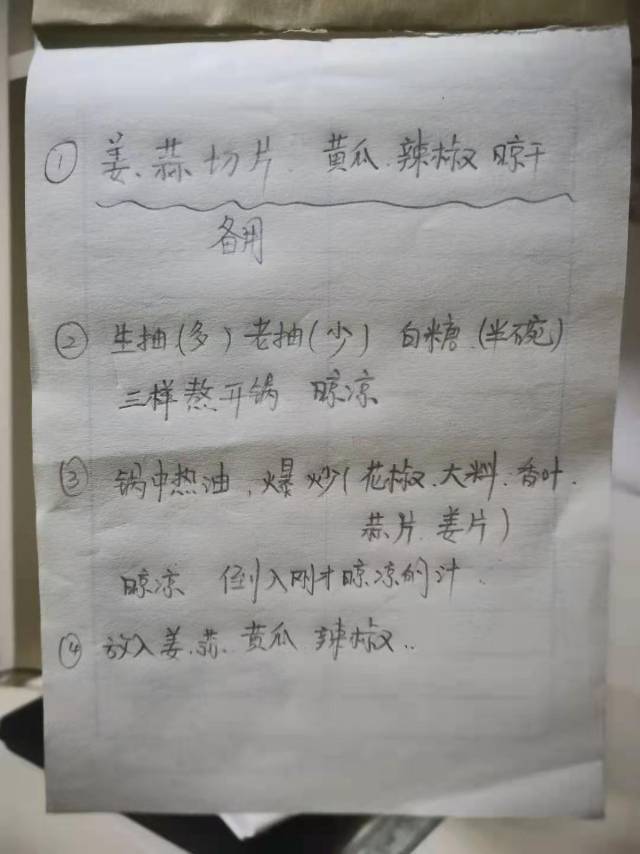 ① 姜、蒜切片、黄瓜、辣椒 晾干
备用
② 生抽(多) 老抽(少) 白糖(半碗)
三样熬开锅 晾凉
③ 锅中热油、爆炒(花椒、大料、香叶、
蒜片、姜片)
晾凉 倒入刚才晾凉的汁.
④ 放入姜、蒜、黄瓜 辣椒..